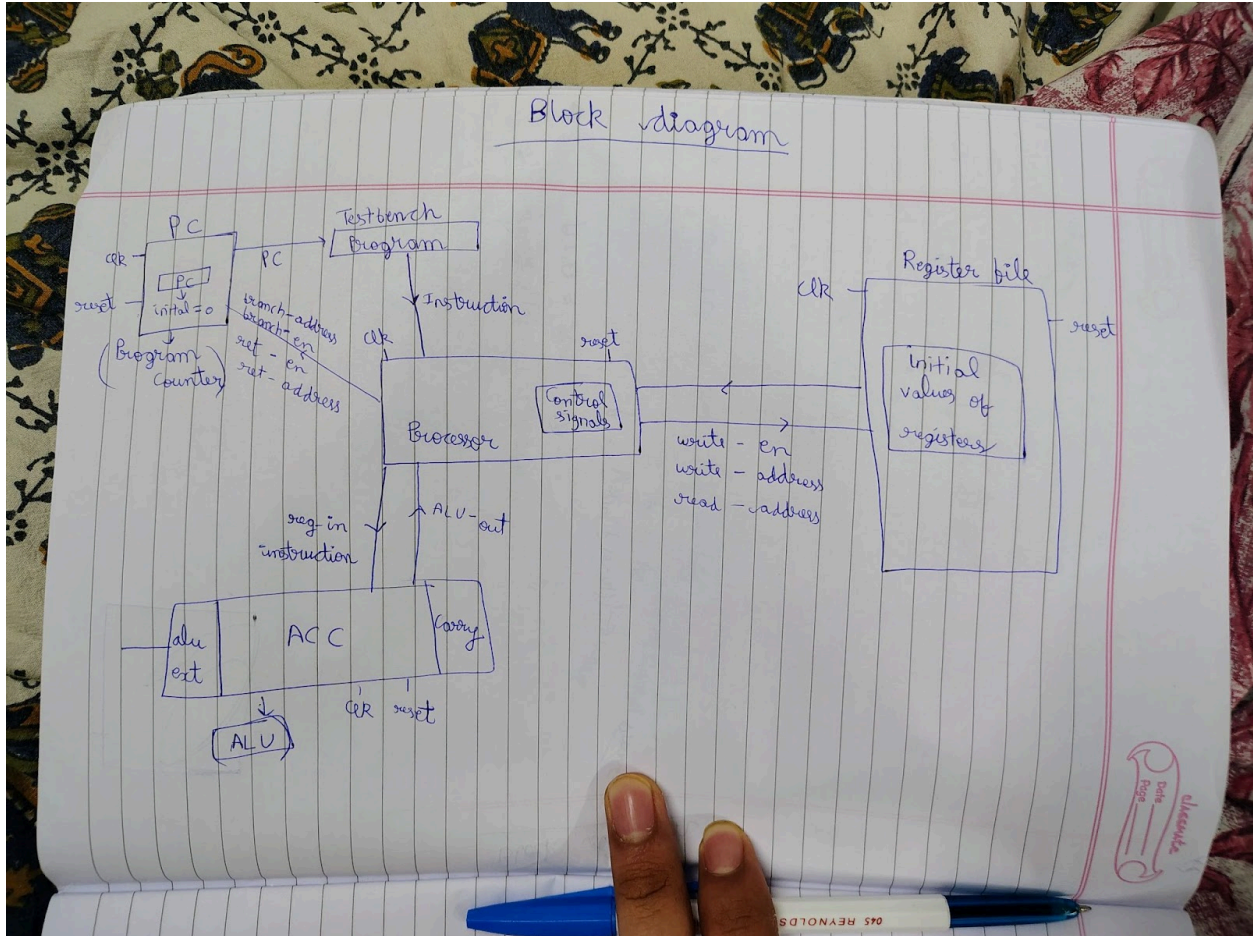 Block diagram
PC
clk
reset
PC
initial = 0
(Program
Counter)
PC
Testbench
Program
Instruction
branch-address
branch-en
ret-en
ret-address
clk
reset
Processor
Control
signals
Register file
clk
reset
initial
values of
registers
write-en
write-address
read-address
reg-in
instruction
ALU-out
alu
ext
ACC
Carry
clk
reset
ALU
classmate
Date
Page
045 REYNOLDS